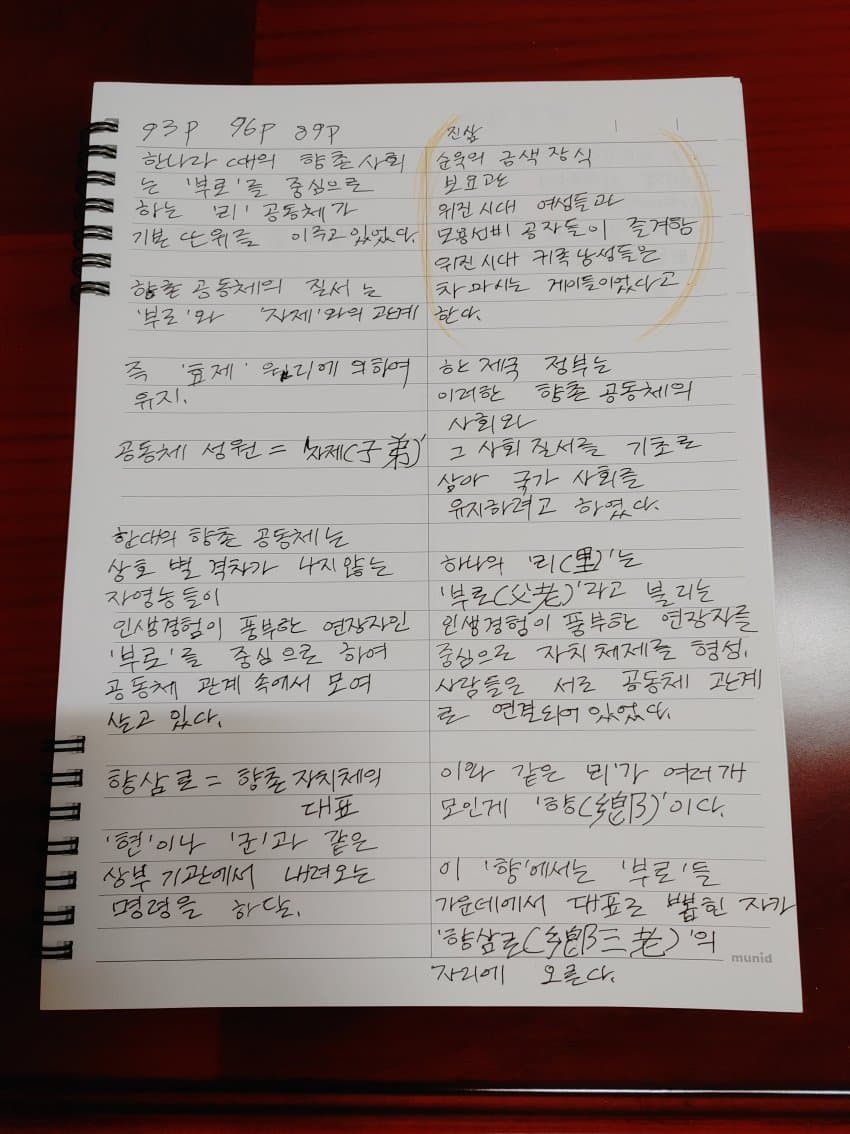 93p 96p 89p
한나라 때의 향촌 사회
는 '부로'를 중심으로
하는 '리' 공동체가
기본 단위를 이루고 있었다.
향촌 공동체의 질서는
'부로'와 '자제'와의 관계
즉 '효제' 윤리에 의하여
유지.
공동체 성원 = '자제(子弟)'
한대의 향촌 공동체는
상호 별 격차가 나지 않는
자영농들이
인생경험이 풍부한 연장자인
'부로'를 중심으로 하여
공동체 관계 속에서 모여
살고 있다.
향삼로 = 향촌 자치체의
대표
'현'이나 '군'과 같은
상부 기관에서 내려오는
명령을 하달.
진삼
순욱의 금색 장식
보요관은
위진 시대 여성들과
모용선비 공자들이 즐겨함
위진 시대 귀족 남성들은
차 마시는 게이들이었다고
한다.
한 제국 정부는
이러한 향촌 공동체의
사회와
그 사회 질서를 기초로
삼아 국가 사회를
유지하려고 하였다.
하나의 '리(里)'는
'부로(父老)'라고 불리는
인생경험이 풍부한 연장자를
중심으로 자치체제를 형성.
사람들은 서로 공동체 관계
로 연결되어 있었다.
이와 같은 '리'가 여러개
모인게 '향(鄕)'이다.
이 '향'에서는 '부로'들
가운데에서 대표로 뽑힌 자가
'향삼로(鄕三老)'의
자리에 오른다.
munid